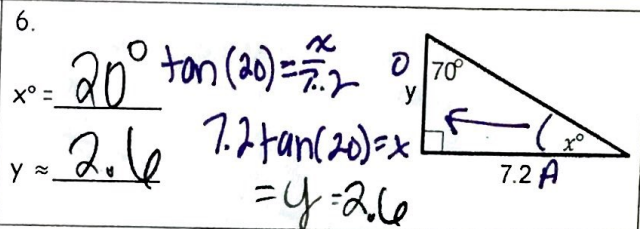 6.
x° = 20°
tan(20) = x/7.2
7.2 tan(20) = x
y ≈ 2.6
= y = 2.6
O
70°
y
x°
7.2 A